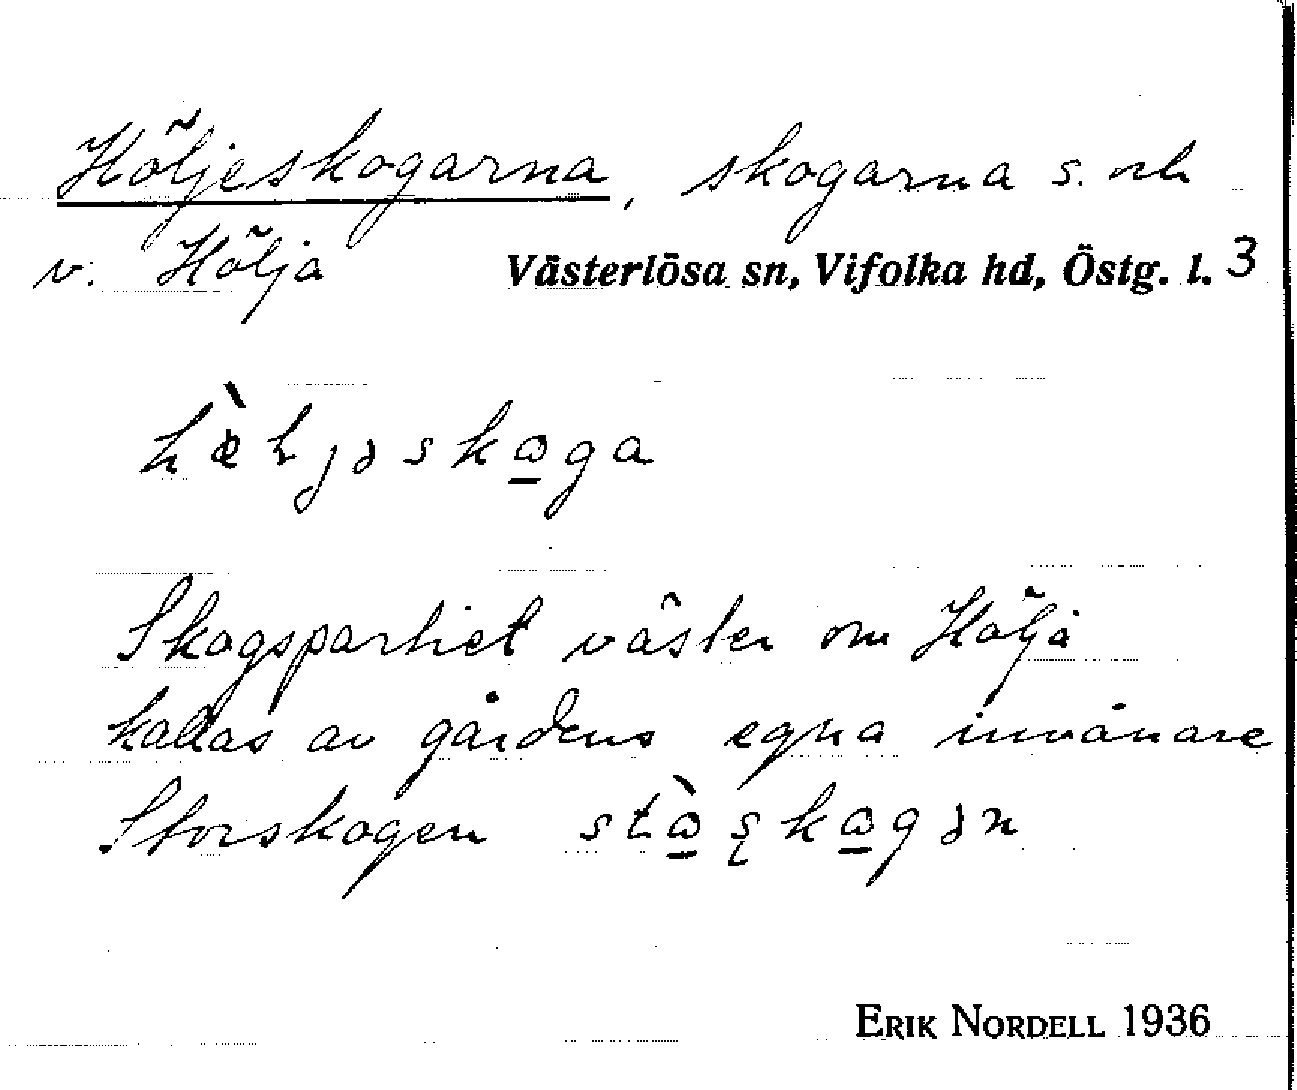 Höljeskogarna, skogarna s. och
v. Hölja Västerlösa sn, Vifolka hd, Östg. l. 3
Skogspartiet väster om Hölja
kallas av gårdens egna invånare
Storskogen
ERIK NORDELL 1936